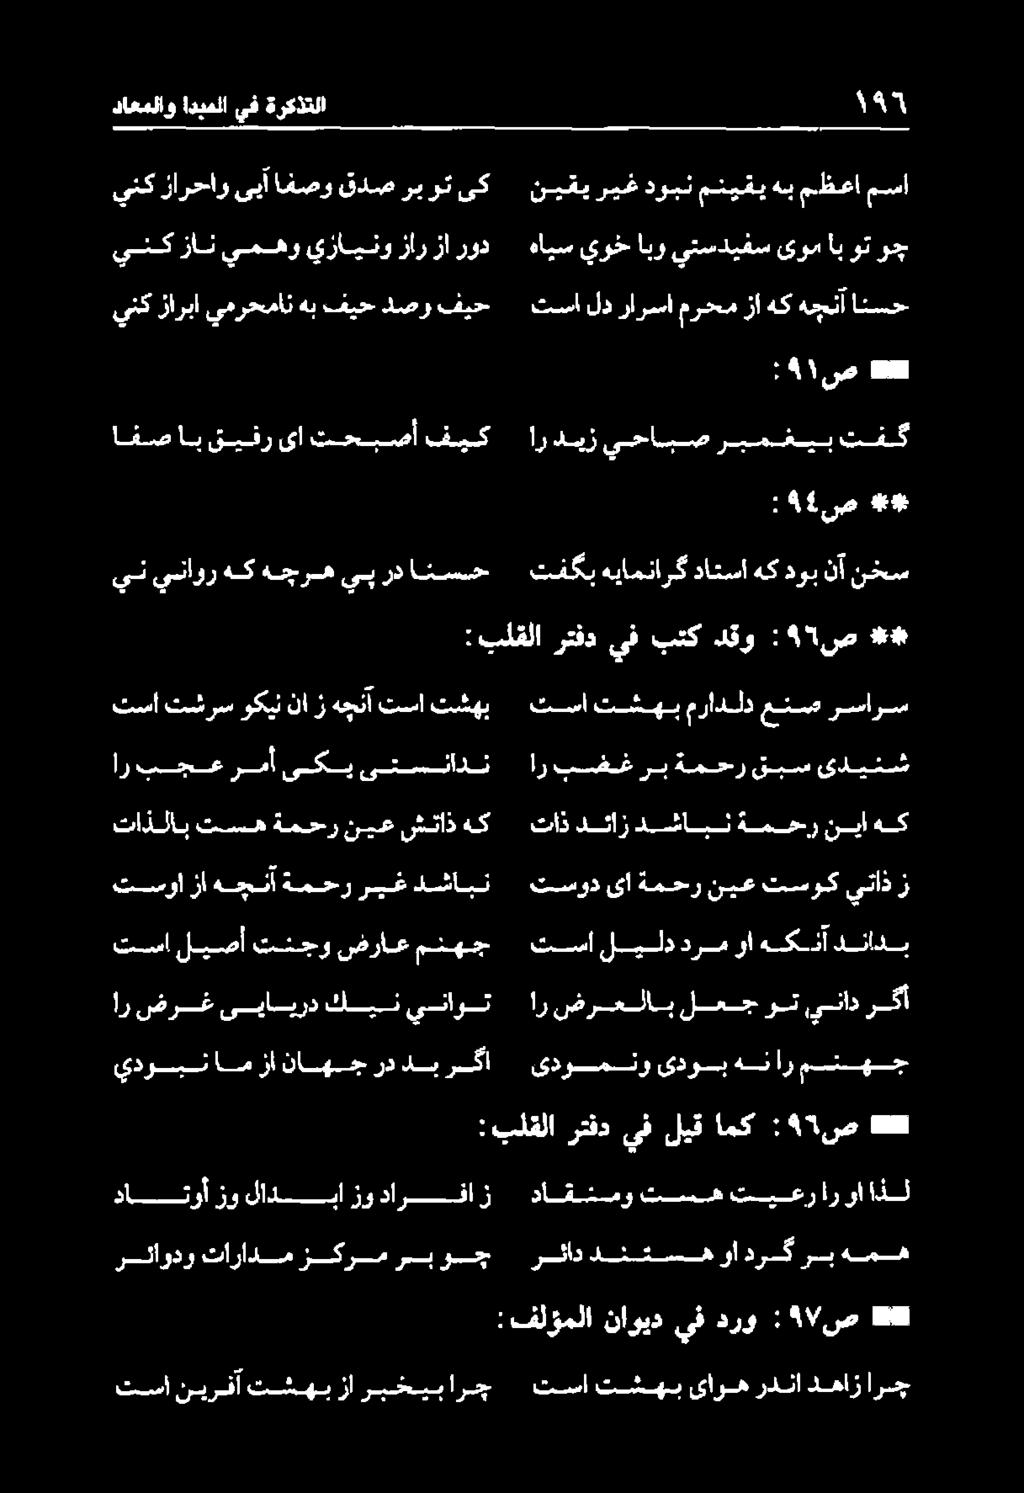 ١٩٦ التذكرة في المبدا والمعاد
اسم اعظم به يقينم نبود غير يقين كى تو بر صدق وصفا آيى واحراز كني
چو تو با موى سفيدستي وبا خوي سياه دور از راز ونيازي وهمي ناز كني
حسنا آنچه كه از محرم اسرار دل است حيف وصد حيف به نامحرمي ابراز كني
ص٩١ :
گفت پيغمبر صباحي زيد را كيف أصبحت اى رفيق با صفا
** ص٩٤ :
سخن آن بود كه استاد گرانمايه بگفت حسنا در پي هرچه كه رواني ني
** ص٩٦ : وقد كتب في دفتر القلب :
سراسر صنع دلدارم بهشت است بهشت است آنچه ز ان نيكو سرشت است
شنيدى سبق رحمة بر غضب را ندانستى يكى أمر عجب را
كه اين رحمة نباشد زائد ذات كه ذاتش عين رحمة هست بالذات
ز ذاتي كوست عين رحمة اى دوست نباشد غير رحمة آنچه از اوست
بداند آنكه او مرد دليل است جهنم عارض وجنت أصيل است
أگر داني تو جعل بالعرض را تواني نيك دريابى غرض را
جهنم را نه بودى ونمودى اگر بد در جهان از ما نبودي
ص٩٦ : كما قيل في دفتر القلب :
لذا او را رعيت هست ومنقاد ز افراد وز ابدال وز أوتاد
همه بر گرد او هستند دائر چو بر مركز مدارات ودوائر
ص٩٧ : ورد في ديوان المؤلف :
چرا زاهد اندر هواى بهشت است چرا بيخبر از بهشت آفرين است